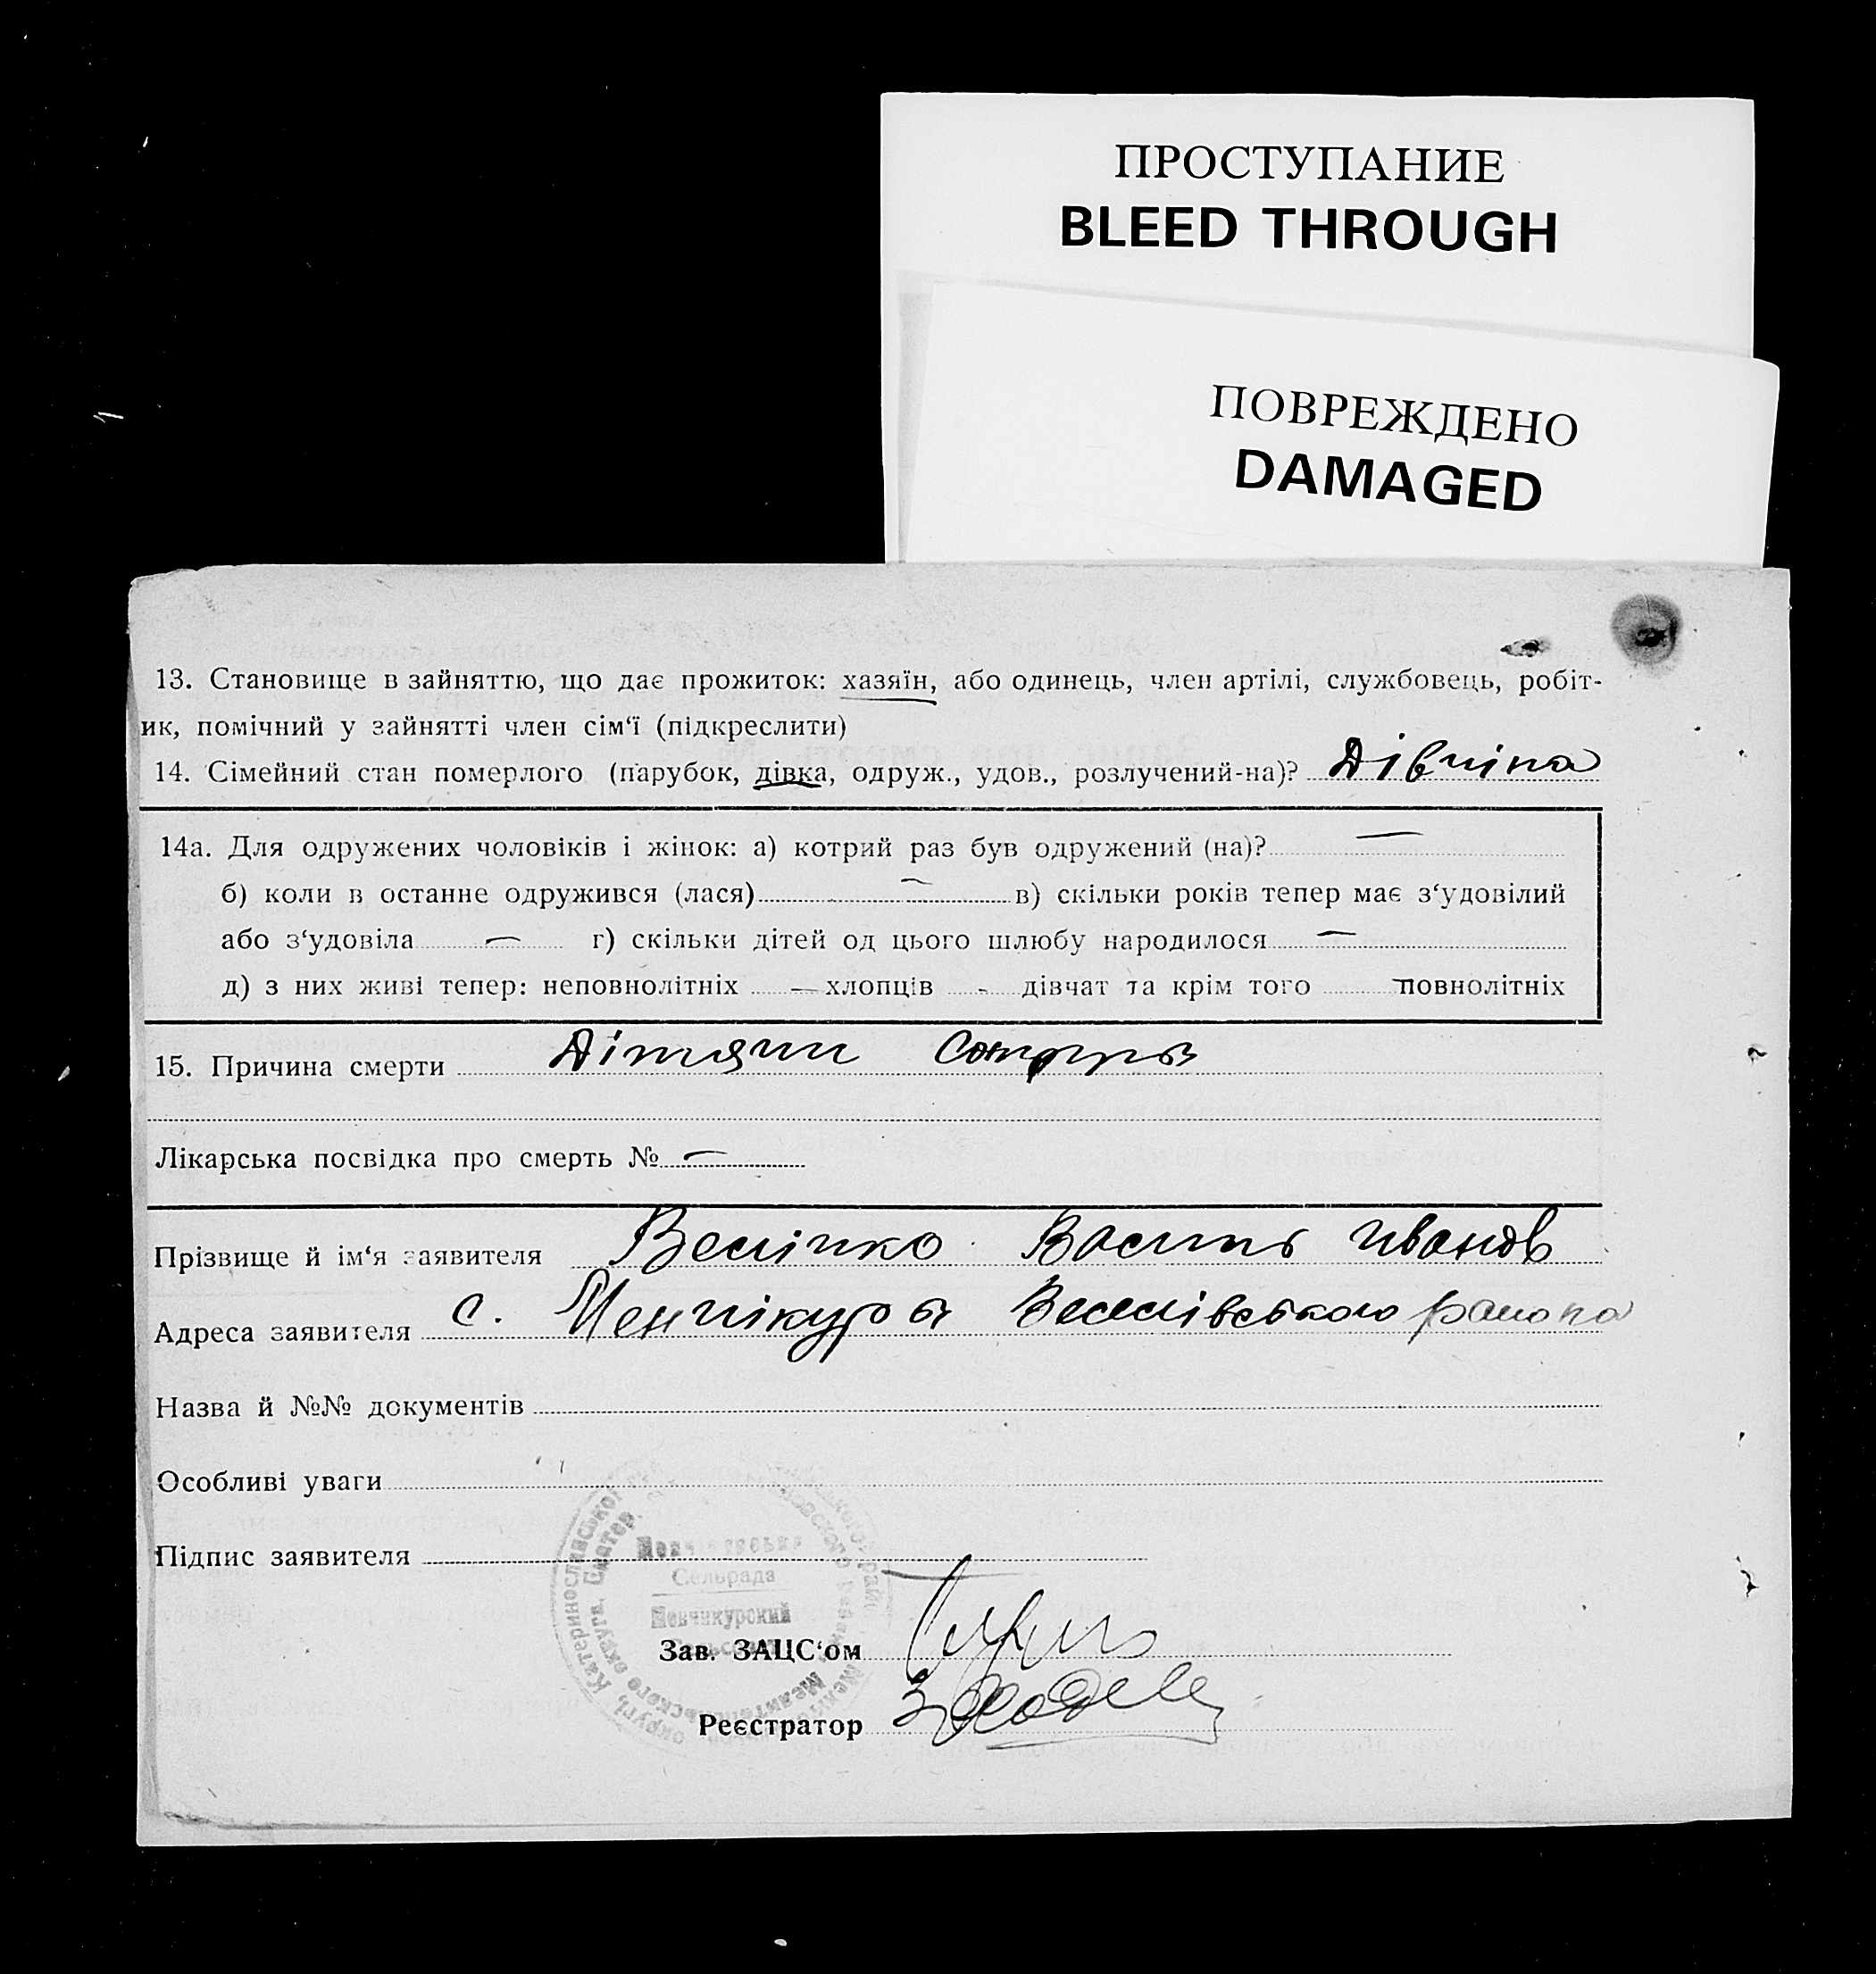 ПРОСТУПАНИЕ
BLEED THROUGH
ПОВРЕЖДЕНО
DAMAGED
13. Становище в зайняттю, що дає прожиток: хазяїн, або одинець, член артілі, службовець, робіт-
ик, помічний у зайнятті член сім‘ї (підкреслити)
14. Сімейний стан померлого (парубок, дівка, одруж., удов., розлучений-на)? Дівчіна
14а. Для одружених чоловіків і жінок: а) котрий раз був одружений (на)? —
б) коли в останне одружився (лася) — в) скільки років тепер має з‘удовілий
або з‘удовіла — г) скільки дітей од цього шлюбу народилося —
д) з них живі тепер: неповнолітніх — хлопців - дівчат та крім того — повнолітніх
15. Причина смерти Дітячи
Лікарська посвідка про смерть № —
Прізвище й ім‘я заявителя Велічко Василь Иванов
Адреса заявителя с. Менчікури Веселівського района
Назва й №№ документів
Особливі уваги
Підпис заявителя
Сельрада
Менчикурский
Зав. ЗАЦС‘ом
Реєстратор